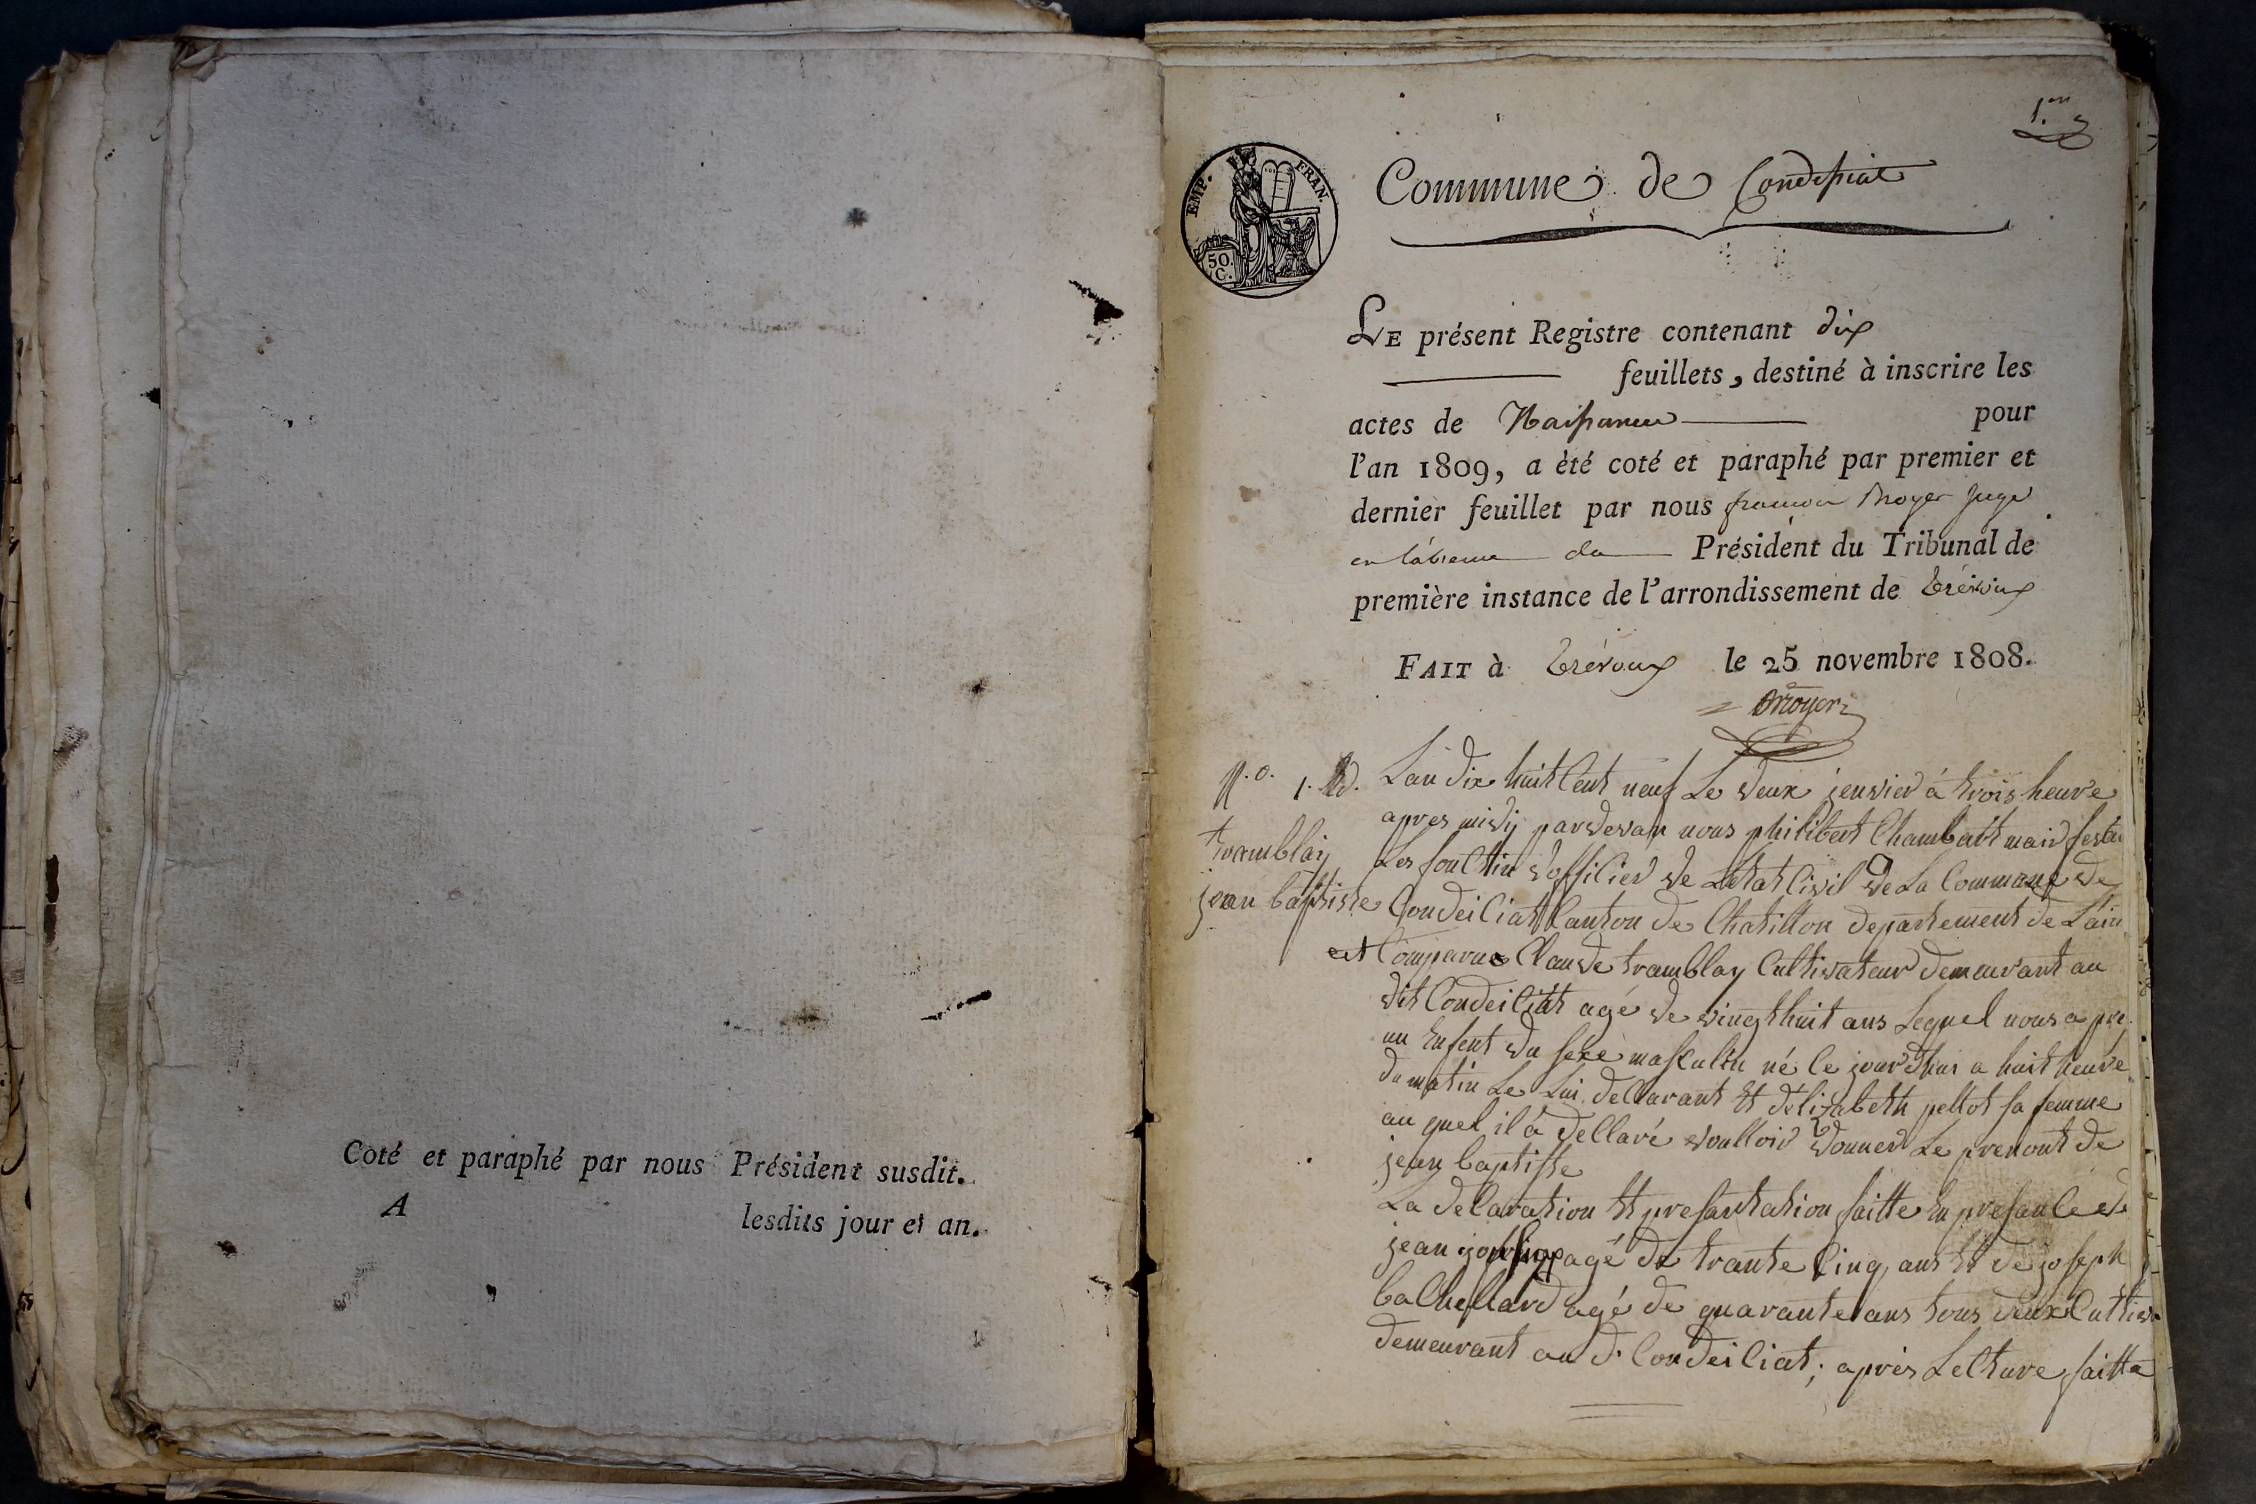 Coté et paraphé par nous Président susdit.
A lesdits jour et an.
1.er
EMP. FRAN.
50.
C.
Commune de Condeissiat
LE présent Registre contenant dix
feuillets, destiné à inscrire les
actes de Naissance pour
l'an 1809, a èté coté et paraphé par premier et
dernier feuillet par nous françois Moyer Juge
en l'absence du Président du Tribunal de
première instance de l'arrondissement de trévoux
FAIT à trévoux le 25 novembre 1808.
Moyer
n.o. 1.
tramblay
jean baptiste
Lan dix huit Cent neuf Le deux jenvier à trois heure
apres midy pardevan nous philibert Chambart maire
Les fonCtin d'offilier de Letat Civil de La Commune de
CondeiCiat Canton de Chatillon departement de Lain
est Comparue Claude tramblay Cultivateur demeurant au
dit CondeiCiat agé de vingt huit ans Lequel nous a pre
un Enfent du sexe masCulin né Ce jourdhui a huit heure
du matin de Lui déClarant Et délizabeth peltot sa femme
au quel il à déClaré voulloir donner Le prenont de
jean baptiste
La delaration Et presantation faitte En presanCe de
jean agé de trante Cinq ans Et de joseph
baChellard agé de quarante ans tous deux Cultiva
demeurant au d. CondeiCiat; après LeCture faitte